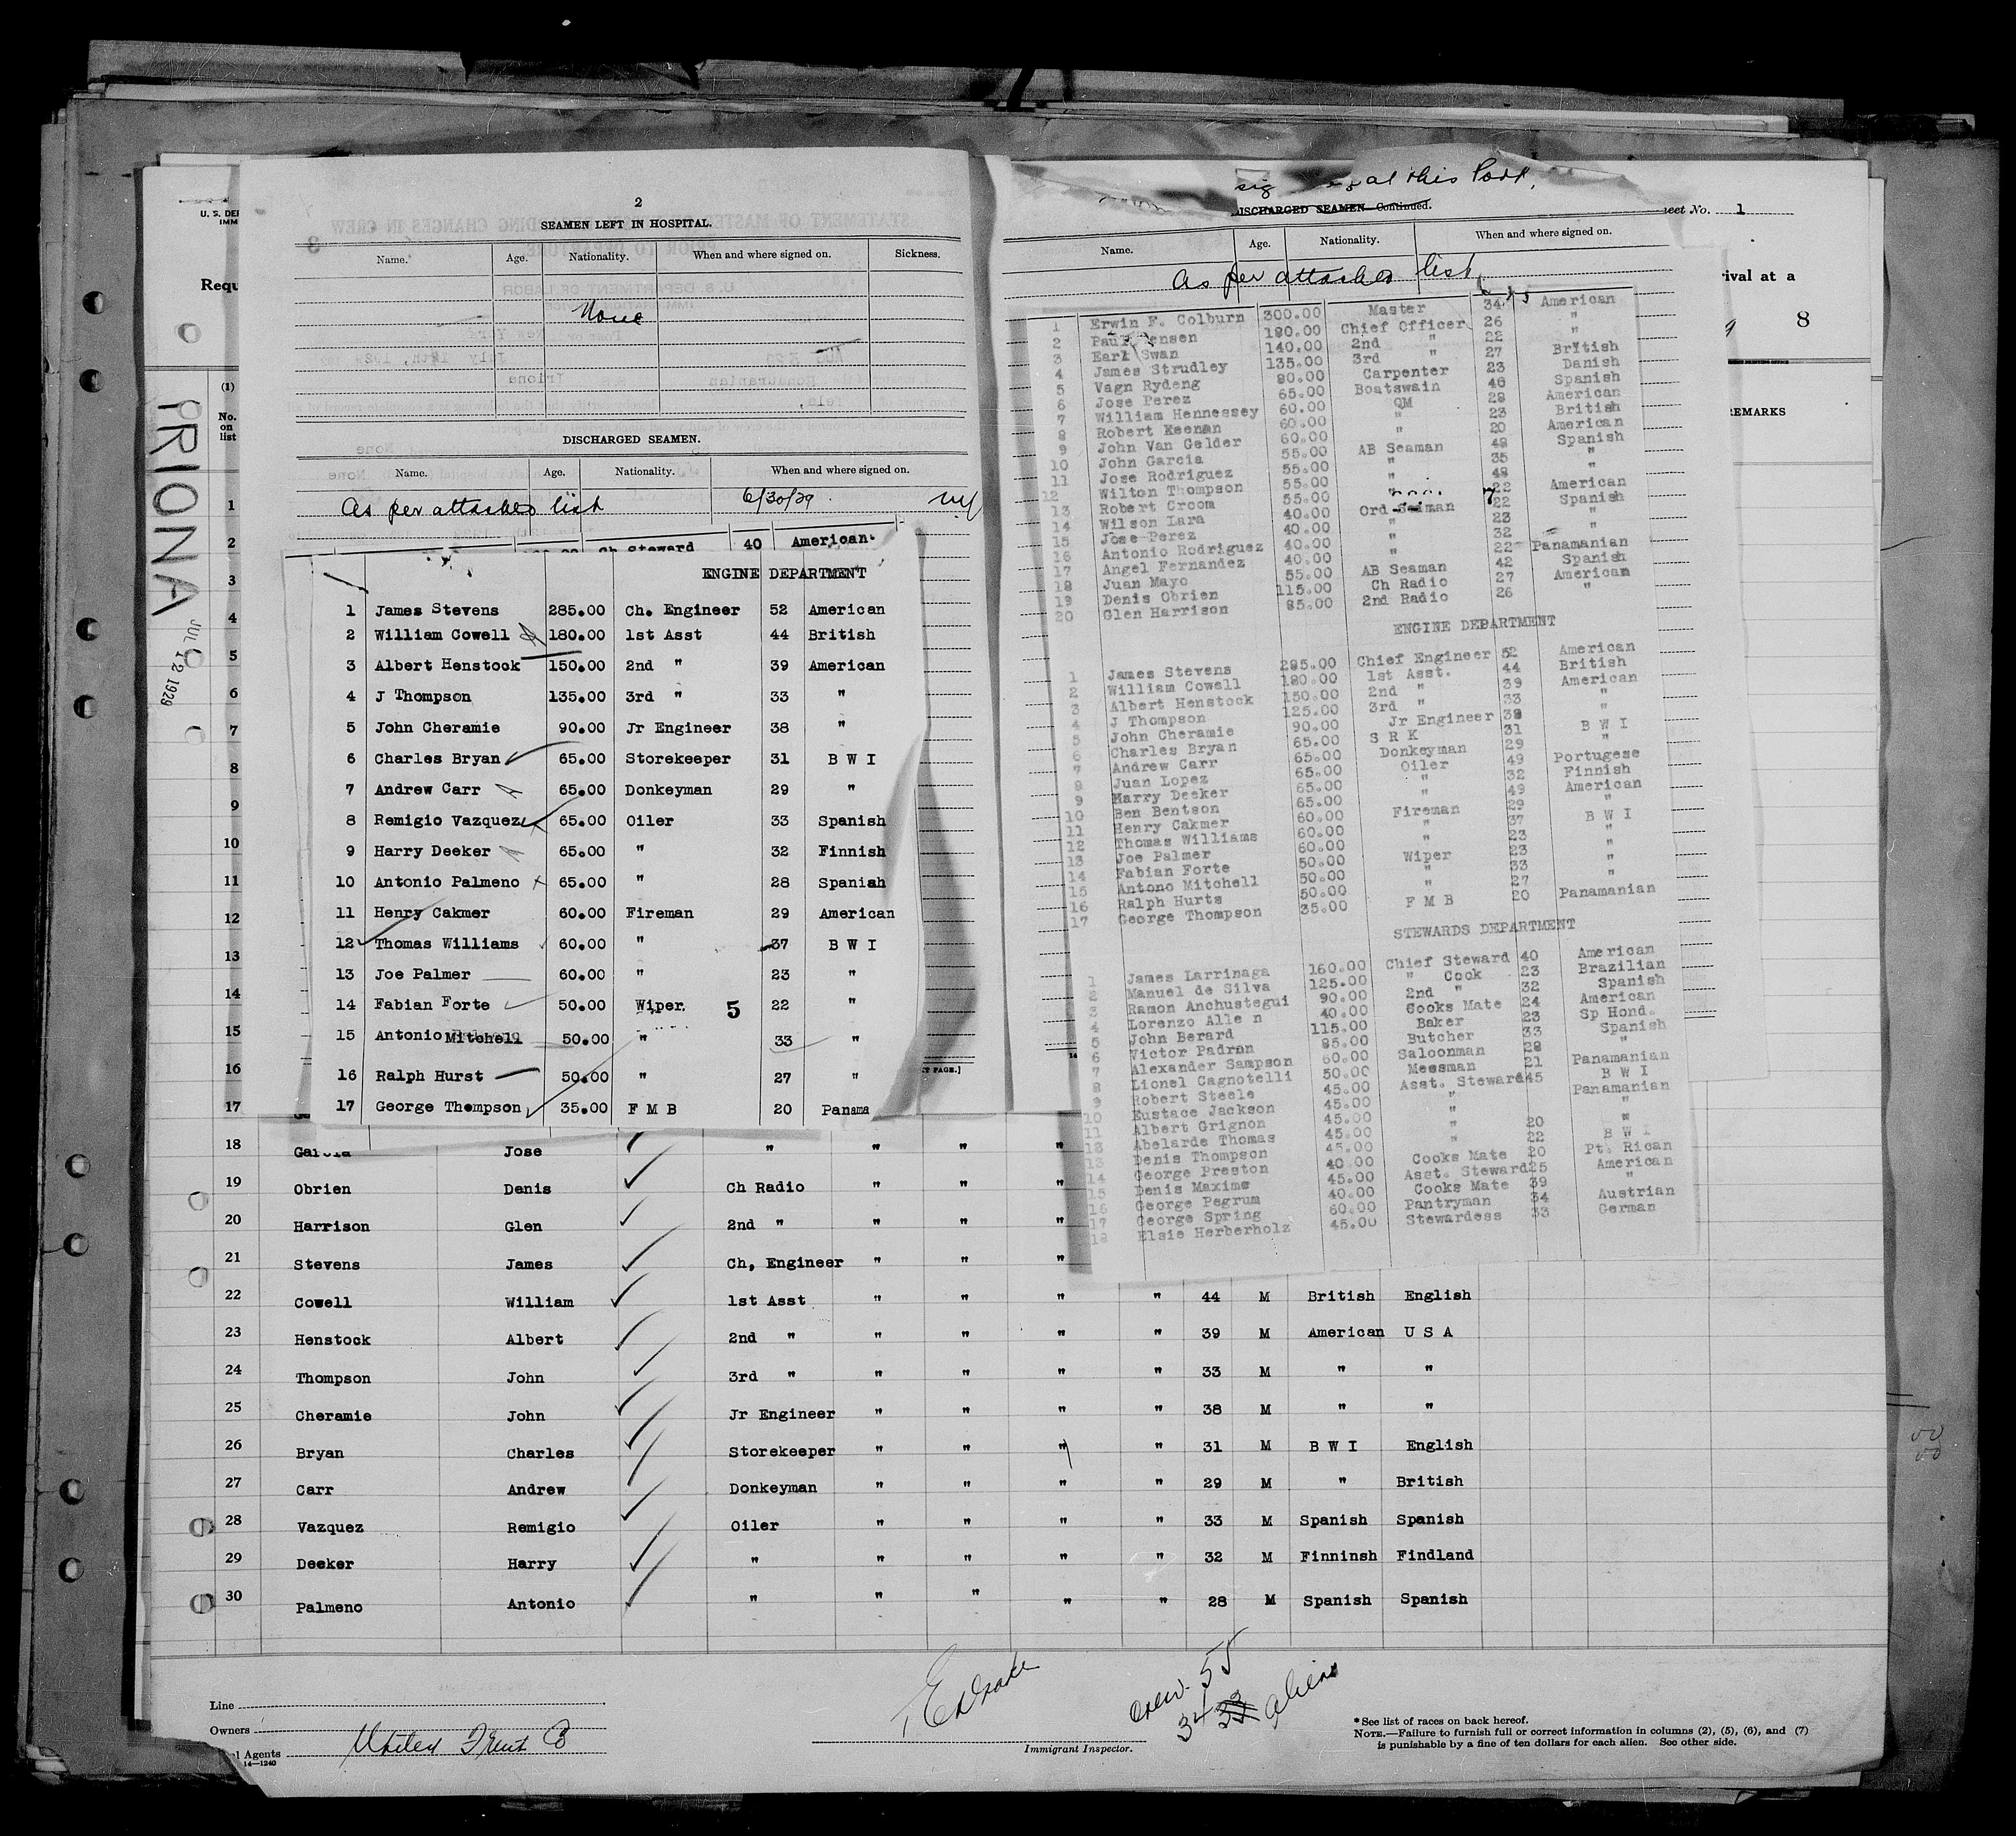 U. S. DEP
IMM
Requ
IRIONA
JUL 12 1929
(1)
No. on list
2
SEAMEN LEFT IN HOSPITAL.
Name. Age. Nationality. When and where signed on. Sickness.
None
DISCHARGED SEAMEN.
Name. Age. Nationality. When and where signed on.
As per attached list 6/30/29. NY
Ch Steward 40 American
ENGINE DEPARTMENT
1 James Stevens 285.00 Ch. Engineer 52 American
2 William Cowell 180.00 1st Asst 44 British
3 Albert Henstock 150.00 2nd " 39 American
4 J Thompson 135.00 3rd " 33 "
5 John Cheramie 90.00 Jr Engineer 38 "
6 Charles Bryan 65.00 Storekeeper 31 B W I
7 Andrew Carr 65.00 Donkeyman 29 "
8 Remigio Vazquez 65.00 Oiler 33 Spanish
9 Harry Deeker 65.00 " 32 Finnish
10 Antonio Palmeno 65.00 " 28 Spanish
11 Henry Cakmer 60.00 Fireman 29 American
12 Thomas Williams 60.00 " 37 B W I
13 Joe Palmer 60.00 " 23 "
14 Fabian Forte 50.00 Wiper 5 22 "
15 Antonio Mitchell 50.00 " 33 "
16 Ralph Hurst 50.00 " 27 "
17 George Thompson 35.00 F M B 20 Panama
at this Port,
DISCHARGED SEAMEN—Continued.
eet No. 1
rival at a
8
EMARKS
Name. Age. Nationality. When and where signed on.
As per attached list
1 Erwin F. Colburn 300.00 Master 34 American
2 Paul Jensen 180.00 Chief Officer 26 "
3 Earl Swan 140.00 2nd " 22 "
4 James Strudley 135.00 3rd " 27 British
5 Vagn Rydeng 80.00 Carpenter 23 Danish
6 Jose Perez 65.00 Boatswain 46 Spanish
7 William Hennessey 60.00 QM 28 American
8 Robert Keenan 60.00 " 23 British
9 John Van Gelder 60.00 " 20 American
10 John Garcia 55.00 AB Seaman 48 Spanish
11 Jose Rodriguez 55.00 " 35 "
12 Wilton Thompson 55.00 " 48
13 Robert Croom 55.00 " 22 American
14 Wilson Lara 40.00 Ord Seiman 22 Spanish
15 Jose Perez 40.00 " 23 "
16 Antonio Rodriguez 40.00 " 32 "
17 Angel Fernandez 40.00 " 22 Panamanian
18 Juan Mayo 55.00 AB Seaman 42 Spanish
19 Denis Obrien 115.00 Ch Radio 27 American
20 Glen Harrison 85.00 2nd Radio 26 "
ENGINE DEPARTMENT
1 James Stevens 285.00 Chief Engineer 52 American
2 William Cowell 180.00 1st Asst. 44 British
3 Albert Henstock 150.00 2nd " 39 American
4 J Thompson 125.00 3rd " 33 "
5 John Cheramie 90.00 Jr Engineer 38 "
6 Charles Bryan 65.00 S R K 31 B W I
7 Andrew Carr 65.00 Donkeyman 29 "
8 Juan Lopez 65.00 Oiler 49 Portugese
9 Harry Deeker 65.00 " 32 Finnish
10 Ben Bentson 65.00 " 49 American
11 Henry Cakmer 60.00 Fireman 29 "
12 Thomas Williams 60.00 " 37 B W I
13 Joe Palmer 60.00 " 23 "
14 Fabian Forte 50.00 Wiper 23 "
15 Antono Mitchell 50.00 " 33 "
16 Ralph Hurts 50.00 " 27 "
17 George Thompson 35.00 F M B 20 Panamanian
STEWARDS DEPARTMENT
1 James Larrinaga 160.00 Chief Steward 40 American
2 Manuel de Silva 125.00 " Cook 23 Brazilian
3 Ramon Anchustegui 90.00 2nd " 32 Spanish
4 Lorenzo Alle n 40.00 Cooks Mate 24 American
5 John Berard 115.00 Baker 23 Sp Hond.
6 Victor Padron 85.00 Butcher 33 Spanish
7 Alexander Sampson 60.00 Saloonman 28 "
8 Lionel Cagnotelli 50.00 Messman 21 Panamanian
9 Robert Steele 45.00 Asst. Steward 45 B W I
10 Eustace Jackson 45.00 " Panamanian
11 Albert Grignon 45.00 "
12 Abelarde Thomas 45.00 " 20 "
13 Denis Thompson 45.00 22 B W I
14 George Preston 40.00 Cooks Mate 20 Pt. Rican
15 Denis Maxime 45.00 Asst. Steward 25 American
16 George Pegrum 40.00 Cooks Mate 39 "
17 George Spring 60.00 Pantryman 34 Austrian
18 Elsie Herberholz 45.00 Stewardess 33 German
1
2
3
4
5
6
7
8
9
10
11
12
13
14
15
16
17
T PAGE.]
18 Garcia Jose " " " "
19 Obrien Denis Ch Radio " " "
20 Harrison Glen 2nd " " " "
21 Stevens James Ch, Engineer " " "
22 Cowell William 1st Asst " " " " 44 M British English
23 Henstock Albert 2nd " " " " " 39 M American U S A
24 Thompson John 3rd " " " " " 33 M " "
25 Cheramie John Jr Engineer " " " " 38 M " "
26 Bryan Charles Storekeeper " " " " 31 M B W I English
27 Carr Andrew Donkeyman " " " " 29 M " British
28 Vazquez Remigio Oiler " " " " 33 M Spanish Spanish
29 Deeker Harry " " " " " 32 M Finninsh Findland
30 Palmeno Antonio " " " " " 28 M Spanish Spanish
Line
Owners
al Agents United Fruit Co
14—1240
Immigrant Inspector.
crew. 55
34 33 aliens
*See list of races on back hereof.
NOTE.—Failure to furnish full or correct information in columns (2), (5), (6), and (7)
is punishable by a fine of ten dollars for each alien. See other side.